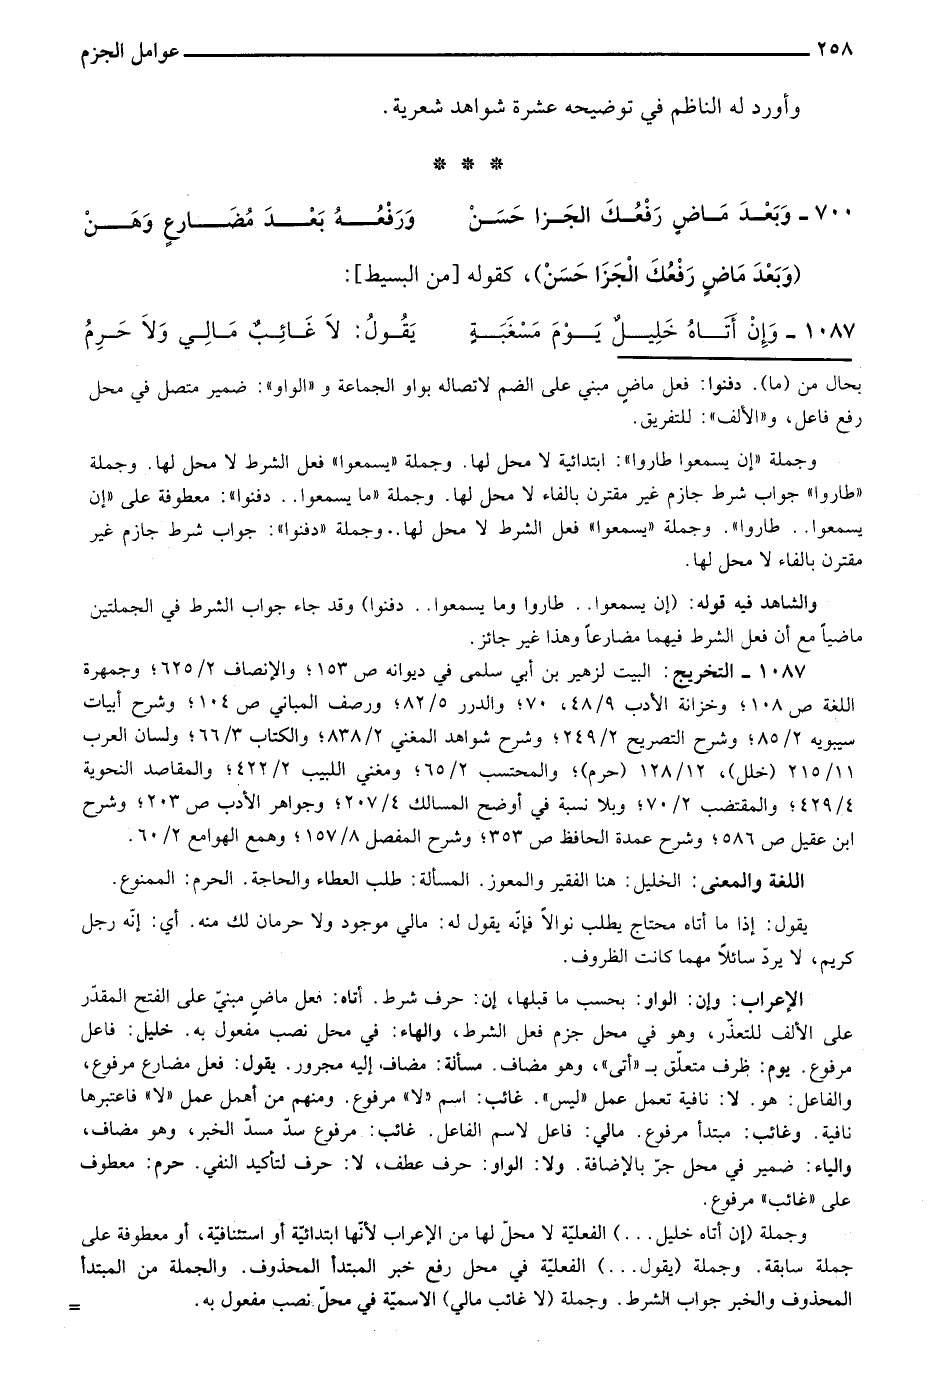 ٢٥٨ عوامل الجزم
وأورد له الناظم في توضيحه عشرة شواهد شعرية.
* * *
٧٠٠ - وَبَعْدَ مَـاضٍ رَفْعُـكَ الجَـزا حَسَـنْ وَرَفْعُـــهُ بَعْـــدَ مُضَـــارِعٍ وَهَـــنْ
(وَبَعْدَ مَاضٍ رَفْعُكَ الْجَزَا حَسَنْ)، كقوله [من البسيط]:
١٠٨٧ - وَإِنْ أَتَـــاهُ خَلِيـــلٌ يَـــوْمَ مَسْغَبَـــةٍ يَقُـولُ: لاَ غَـائِبٌ مَـالِـي وَلاَ حَـرِمُ
بحال من (ما). دفنوا: فعل ماضٍ مبني على الضم لاتصاله بواو الجماعة و «الواو»: ضمير متصل في محل
رفع فاعل، و«الألف»: للتفريق.
وجملة «إن يسمعوا طاروا»: ابتدائية لا محل لها. وجملة «يسمعوا» فعل الشرط لا محل لها. وجملة
«طاروا» جواب شرط جازم غير مقترن بالفاء لا محل لها. وجملة «ما يسمعوا.. دفنوا»: معطوفة على «إن
يسمعوا.. طاروا». وجملة «يسمعوا» فعل الشرط لا محل لها..وجملة «دفنوا»: جواب شرط جازم غير
مقترن بالفاء لا محل لها.
والشاهد فيه قوله: (إن يسمعوا.. طاروا وما يسمعوا.. دفنوا) وقد جاء جواب الشرط في الجملتين
ماضياً مع أن فعل الشرط فيهما مضارعاً وهذا غير جائز.
١٠٨٧ - التخريج: البيت لزهير بن أبي سلمى في ديوانه ص ١٥٣؛ والإنصاف ٢/ ٦٢٥؛ وجمهرة
اللغة ص ١٠٨؛ وخزانة الأدب ٩/ ٤٨، ٧٠؛ والدرر ٥/ ٨٢؛ ورصف المباني ص ١٠٤؛ وشرح أبيات
سيبويه ٢/ ٨٥؛ وشرح التصريح ٢/ ٢٤٩؛ وشرح شواهد المغني ٢/ ٨٣٨؛ والكتاب ٣/ ٦٦؛ ولسان العرب
١١/ ٢١٥ (خلل)، ١٢/ ١٢٨ (حرم)؛ والمحتسب ٢/ ٦٥؛ ومغني اللبيب ٢/ ٤٢٢؛ والمقاصد النحوية
٤/ ٤٢٩؛ والمقتضب ٢/ ٧٠؛ وبلا نسبة في أوضح المسالك ٤/ ٢٠٧؛ وجواهر الأدب ص ٢٠٣؛ وشرح
ابن عقيل ص ٥٨٦؛ وشرح عمدة الحافظ ص ٣٥٣؛ وشرح المفصل ٨/ ١٥٧؛ وهمع الهوامع ٢/ ٦٠.
اللغة والمعنى: الخليل: هنا الفقير والمعوز. المسألة: طلب العطاء والحاجة. الحرم: الممنوع.
يقول: إذا ما أتاه محتاج يطلب نوالاً فإنّه يقول له: مالي موجود ولا حرمان لك منه. أي: إنّه رجل
كريم، لا يردّ سائلاً مهما كانت الظروف.
الإعراب: وإن: الواو: بحسب ما قبلها، إن: حرف شرط. أتاه: فعل ماضٍ مبنيّ على الفتح المقدّر
على الألف للتعذّر، وهو في محل جزم فعل الشرط، والهاء: في محل نصب مفعول به. خليل: فاعل
مرفوع. يوم: ظرف متعلّق بـ «أتى»، وهو مضاف. مسألة: مضاف إليه مجرور. يقول: فعل مضارع مرفوع،
والفاعل: هو. لا: نافية تعمل عمل «ليس». غائب: اسم «لا» مرفوع. ومنهم من أهمل عمل «لا» فاعتبرها
نافية. وغائب: مبتدأ مرفوع. مالي: فاعل لاسم الفاعل. غائب: مرفوع سدّ مسدّ الخبر، وهو مضاف،
والياء: ضمير في محل جرّ بالإضافة. ولا: الواو: حرف عطف، لا: حرف لتأكيد النفي. حرم: معطوف
على «غائب» مرفوع.
وجملة (إن أتاه خليل...) الفعليّة لا محلّ لها من الإعراب لأنّها ابتدائيّة أو استئنافيّة، أو معطوفة على
جملة سابقة. وجملة (يقول...) الفعليّة في محل رفع خبر المبتدأ المحذوف. والجملة من المبتدأ
المحذوف والخبر جواب الشرط. وجملة (لا غائب مالي) الاسميّة في محلّ نصب مفعول به. =